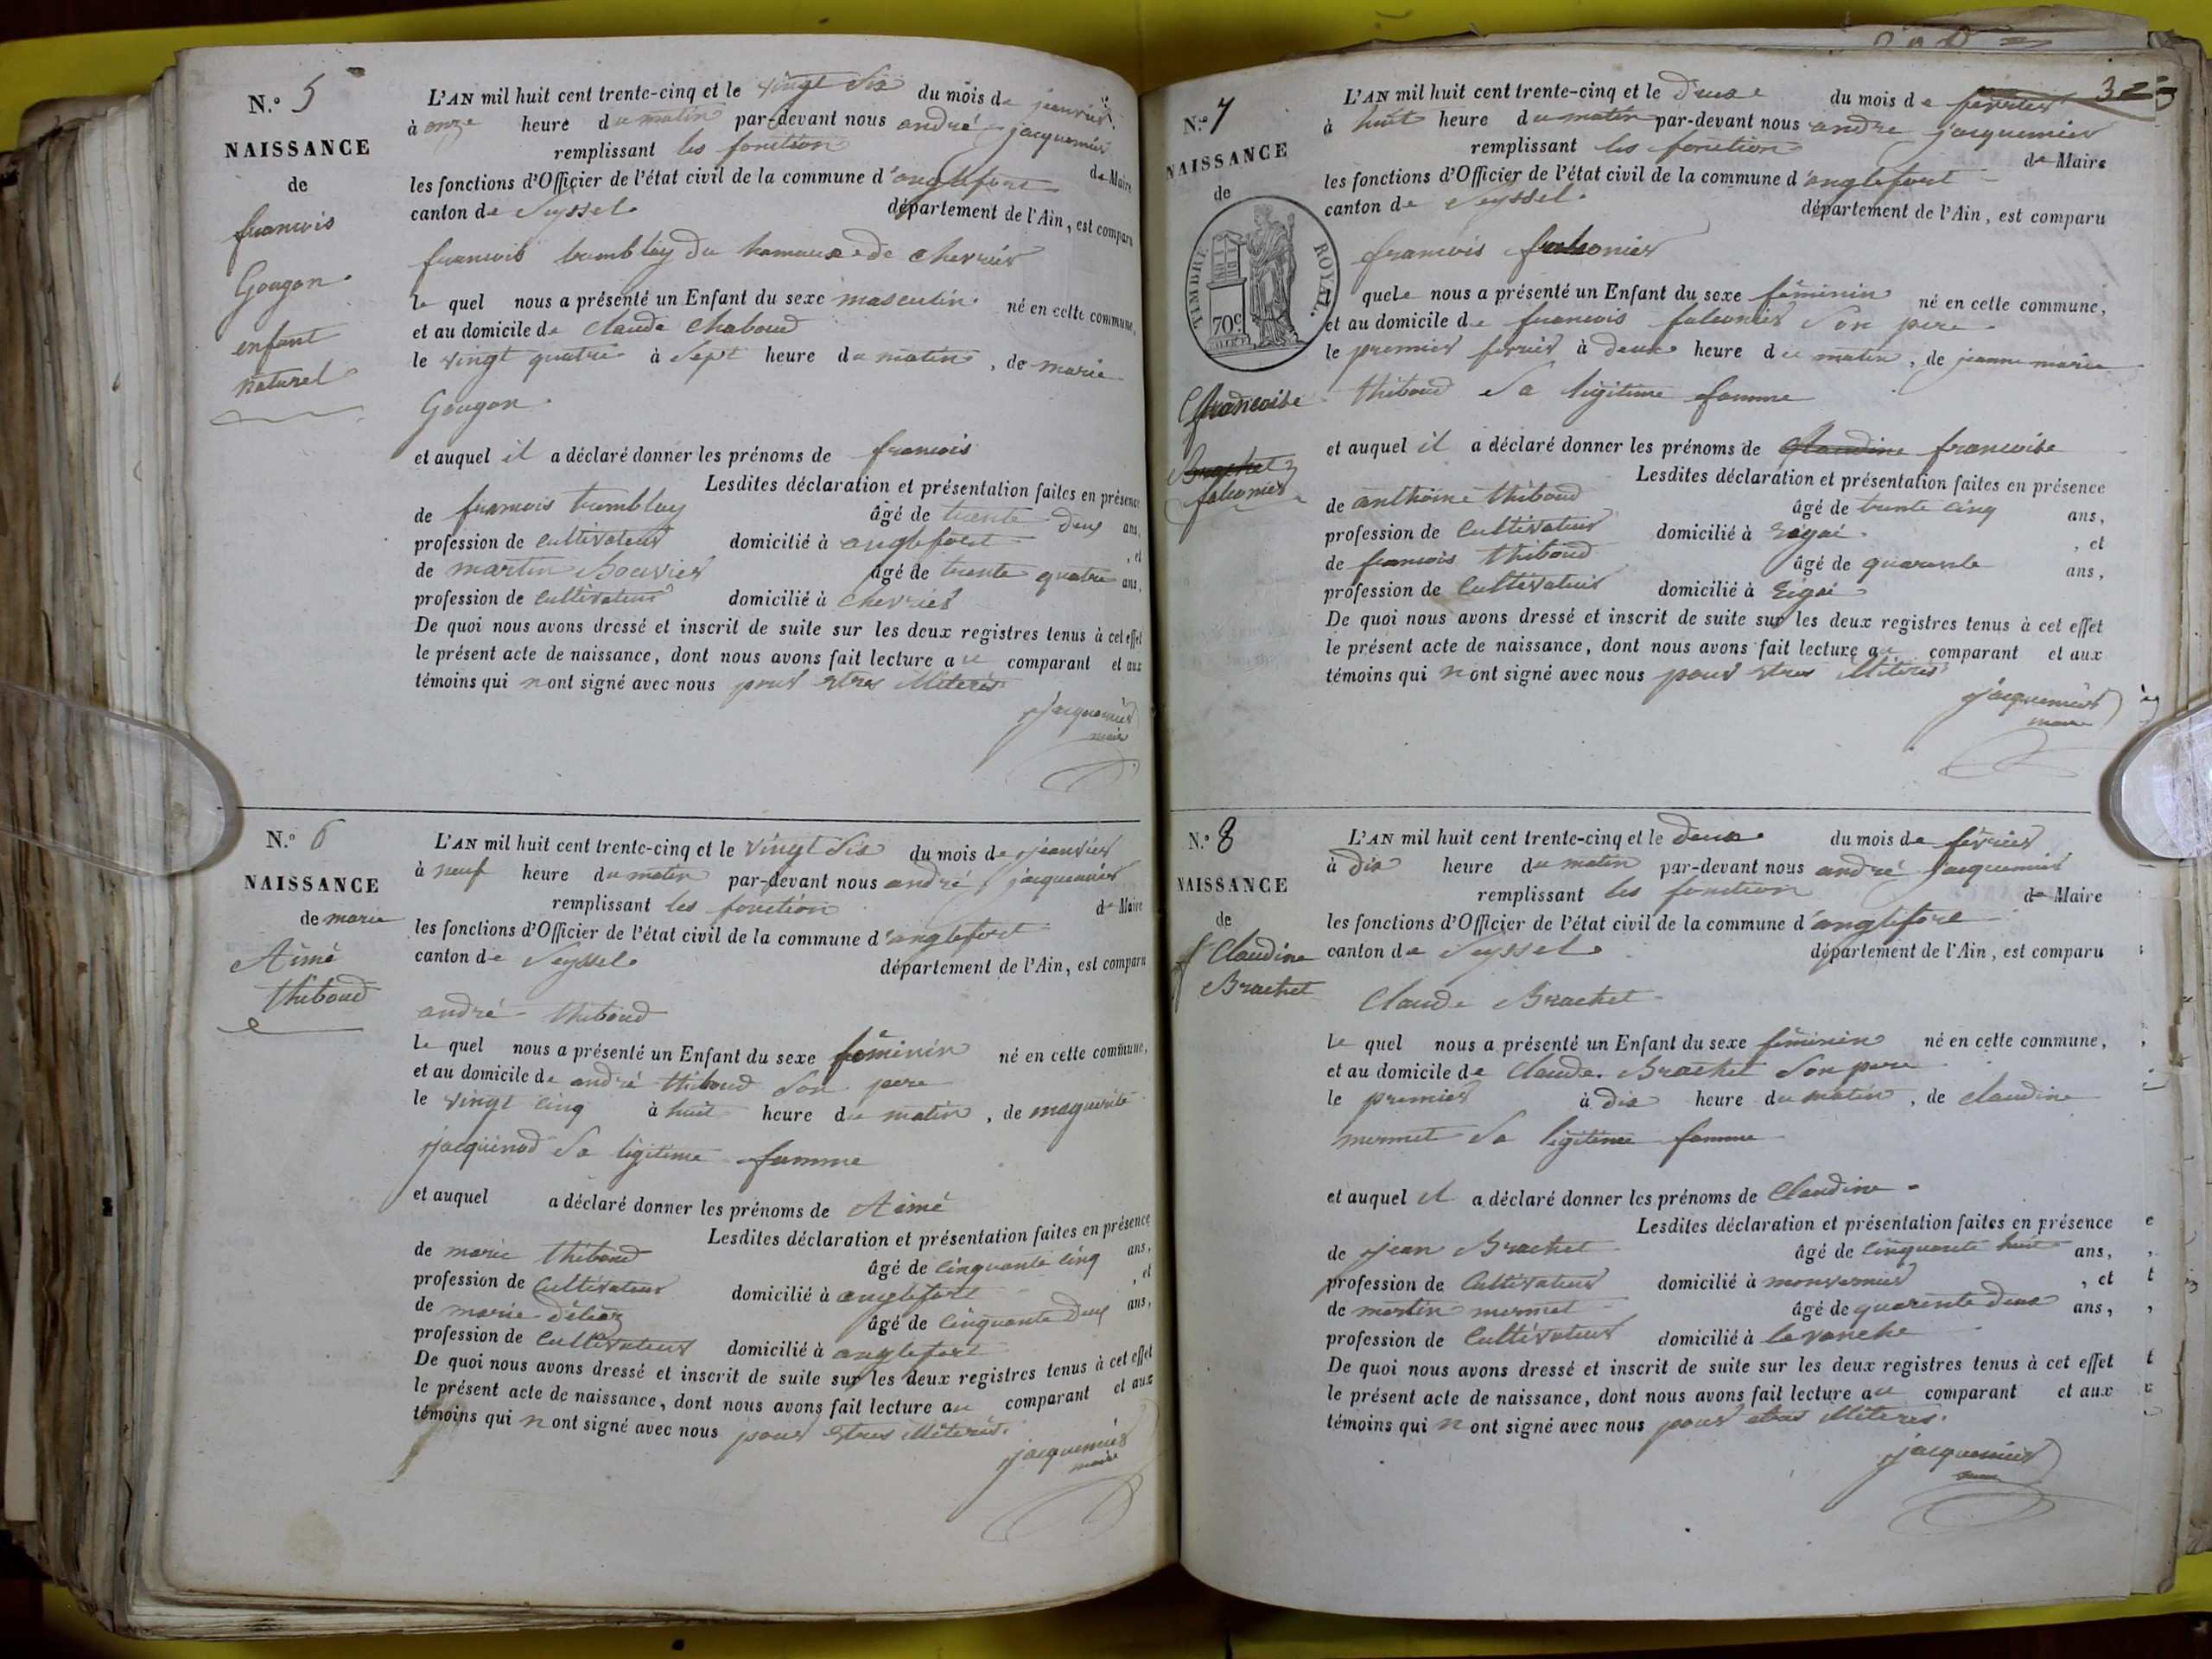 N.º 5
NAISSANCE
de
francois
Gougon
enfant
naturel
L'AN mil huit cent trente-cinq et le vingt six du mois de janvier
à onze heure du matin par-devant nous andré jacquemier
remplissant les fonction de Maire
les fonctions d'Officier de l'état civil de la commune d'anglefort
canton de Seyssel département de l'Ain, est comparu
francois tremblay du hamaux de chevrier
le quel nous a présenté un Enfant du sexe masculin né en cette commune,
et au domicile de claude chaboud
le vingt quatre à sept heure du matin, de marie
Gougon
et auquel il a déclaré donner les prénoms de francois
Lesdites déclaration et présentation faites en présence
de francois tremblay âgé de trente deux ans,
profession de cultivateur domicilié à anglefort, et
de martin Bouvier âgé de trente quatre ans,
profession de cultivateur domicilié à chevrier
De quoi nous avons dressé et inscrit de suite sur les deux registres tenus à cet effet
le présent acte de naissance, dont nous avons fait lecture au comparant et aux
témoins qui n'ont signé avec nous pour etres illiteres
jacquemier
maire
N.º 6
NAISSANCE
de marie
Aimé
thiboud
L'AN mil huit cent trente-cinq et le vingt six du mois de janvier
à neuf heure du matin par-devant nous andré jacquemier
remplissant les fonction de Maire
les fonctions d'Officier de l'état civil de la commune d'anglefort
canton de Seyssel département de l'Ain, est comparu
andré thiboud
le quel nous a présenté un Enfant du sexe féminin né en cette commune,
et au domicile de andré thiboud son pere
le vingt cinq à huit heure du matin, de maguerite
jacquinod sa légitime famme
et auquel a déclaré donner les prénoms de Aimé
Lesdites déclaration et présentation faites en présence
de marie thiboud âgé de cinquante cinq ans,
profession de cultivateur domicilié à anglefort, et
de marie âgé de cinquante deux ans,
profession de cultivateur domicilié à anglefort
De quoi nous avons dressé et inscrit de suite sur les deux registres tenus à cet effet
le présent acte de naissance, dont nous avons fait lecture au comparant et aux
témoins qui n'ont signé avec nous pour etres illiteres
jacquemier
maire
325
N.º 7
NAISSANCE
de
TIMBRE ROYAL.
70c
francoise
Brachet
falconier
L'AN mil huit cent trente-cinq et le deux du mois de fevrier
à huit heure du matin par-devant nous andre jacquemier
remplissant les fonction de Maire
les fonctions d'Officier de l'état civil de la commune d'anglefort
canton de Seyssel département de l'Ain, est comparu
francois falconier
quele nous a présenté un Enfant du sexe féminin né en cette commune,
et au domicile de francois falconier son pere
le premier fevrier à deux heure du matin, de jeanne marie
thiboud sa légitime famme
et auquel il a déclaré donner les prénoms de Claudine francoise
Lesdites déclaration et présentation faites en présence
de anthoine thiboud âgé de trente cinq ans,
profession de cultivateur domicilié à, et
de francois thiboud âgé de quarente ans,
profession de cultivateur domicilié à
De quoi nous avons dressé et inscrit de suite sur les deux registres tenus à cet effet
le présent acte de naissance, dont nous avons fait lecture au comparant et aux
témoins qui n'ont signé avec nous pour etres illiteres
jacquemier
maire
N.º 8
NAISSANCE
de
Claudine
Brachet
L'AN mil huit cent trente-cinq et le deux du mois de fevrier
à dix heure du matin par-devant nous andré jacquemier
remplissant les fonction de Maire
les fonctions d'Officier de l'état civil de la commune d'anglefort
canton de Seyssel département de l'Ain, est comparu
Claude Brachet
le quel nous a présenté un Enfant du sexe féminin né en cette commune,
et au domicile de Claude Brachet son pere
le premier à dix heure du matin, de claudine
mermet sa légitime famme
et auquel il a déclaré donner les prénoms de Claudine
Lesdites déclaration et présentation faites en présence
de jean Brachet âgé de cinquante huit ans,
profession de cultivateur domicilié à, et
de martin mermet âgé de quarente deux ans,
profession de cultivateur domicilié à lavanche
De quoi nous avons dressé et inscrit de suite sur les deux registres tenus à cet effet
le présent acte de naissance, dont nous avons fait lecture au comparant et aux
témoins qui n'ont signé avec nous pour etres illiteres
jacquemier